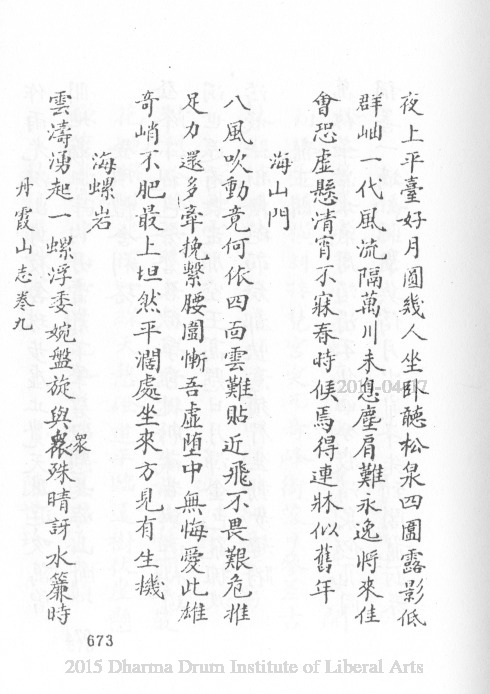 夜上平臺好月圓幾人坐卧聽松泉四圍露影低
群岫一代風流隔萬川未息塵肩難永逸將來佳
會恐虛懸清宵不寐春時候焉得連牀似舊年
海山門
八風吹動竟何依四面雲難貼近飛不畏艱危惟
足力還多牽挽繫腰圍慚吾虛堕中無悔愛此雄
奇峭不肥最上坦然平濶處坐來方見有生機
海螺岩
雲濤湧起一螺浮委婉盤旋與衆殊晴訝水簾時
衆
丹霞山志卷九
673
2015 Dharma Drum Institute of Liberal Arts